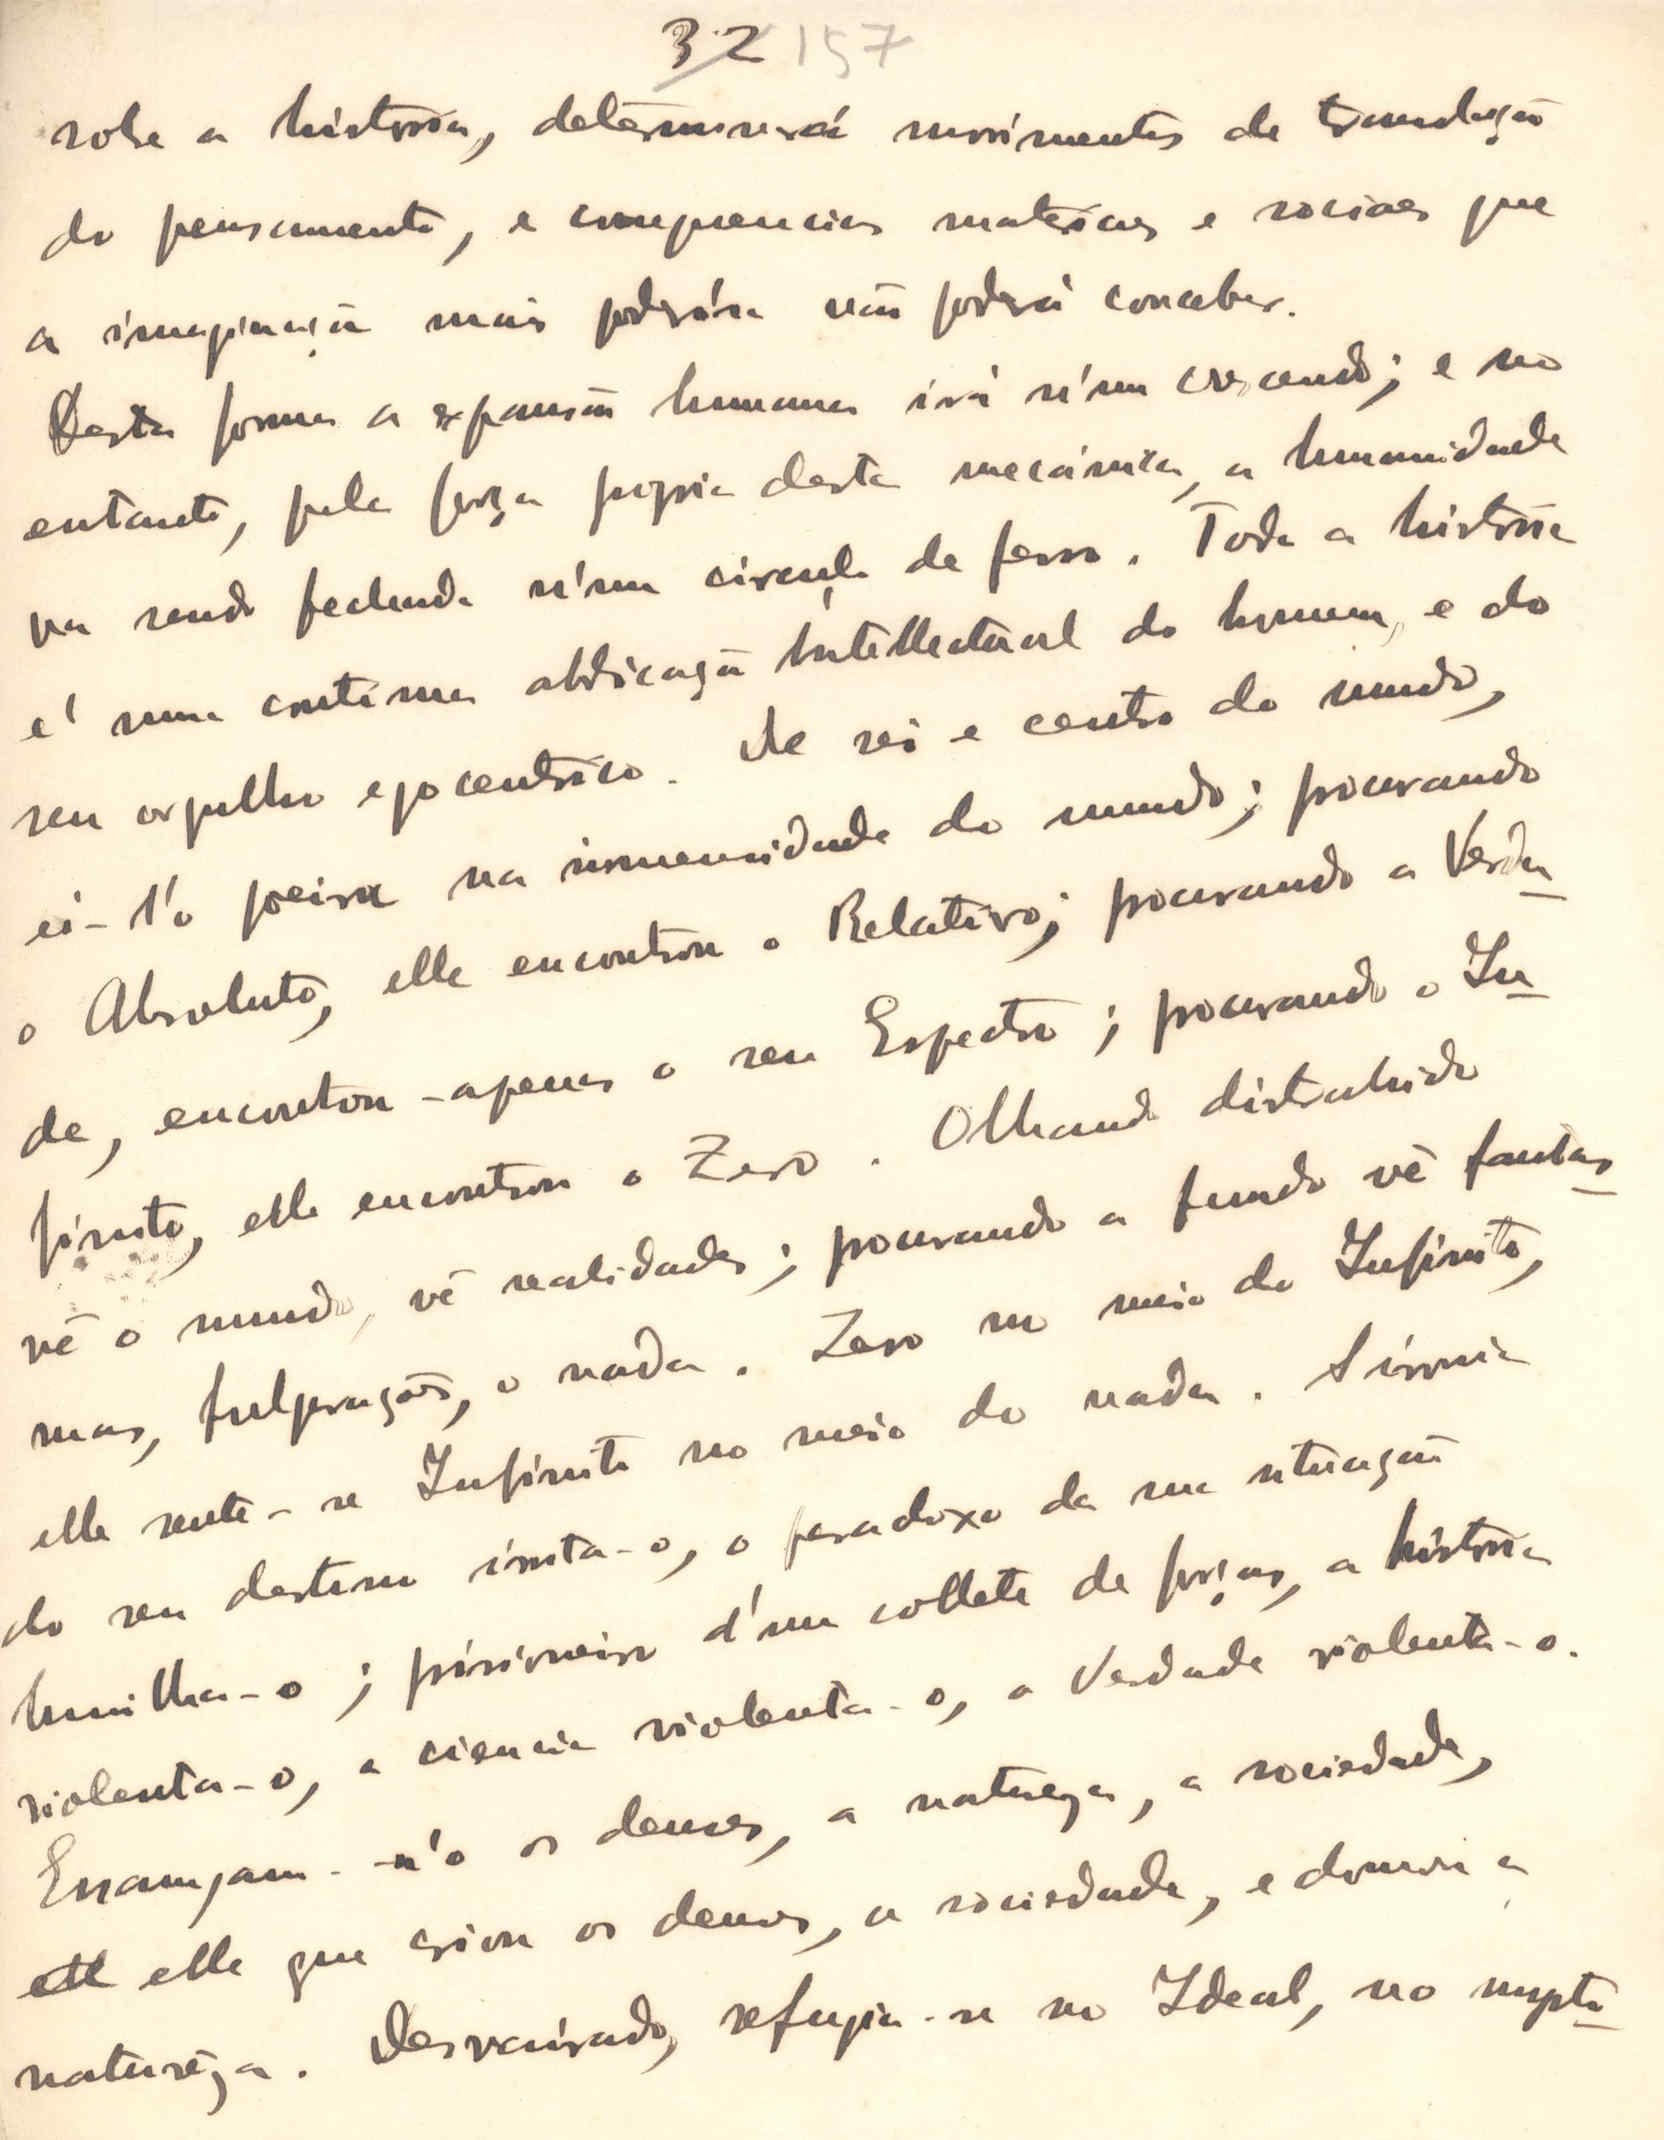 32 157
sobre a historia, determinará movimentos de translação
do pensamento, e consequencias materiaes e sociaes que
a imaginação mais poderósa não poderá conceber.
Desta forma a expansão humana irá n'um crescendo; e no
entanto, pela força propria desta mecánica, a humanidade
va sendo fechada n'um circulo de ferro. Toda a história
é uma continua abdicação intellectual do homem, e do
seu orgulho egocentrico. De rei e centro do mundo,
ei-l'o poeira na immensidade do mundo; procurando
o Absoluto, elle encontrou o Relativo; procurando a Verda-
de, encontrou-apenas o seu Espectro; procurando o In-
finito, elle encontrou o Zero. Olhando distrahido
vê o mundo, vê realidades; procurando a fundo vê fantas-
mas, fulgurações, o nada. Zero no meio do Infinito,
elle sente-se Infinito no meio do nada. A ironia
do seu destino irrita-o, o paradoxo da sua situação
humilha-o; prisioneiro d'um collete de forças, a história
violenta-o, a ciencia violenta-o, a Verdade violenta-o.
os deuses, a natureza, a sociedade,
elle que criou os deuses, a sociedade, e domou a
naturêza. Desvairado, refugia-se no Ideal, no mysti-